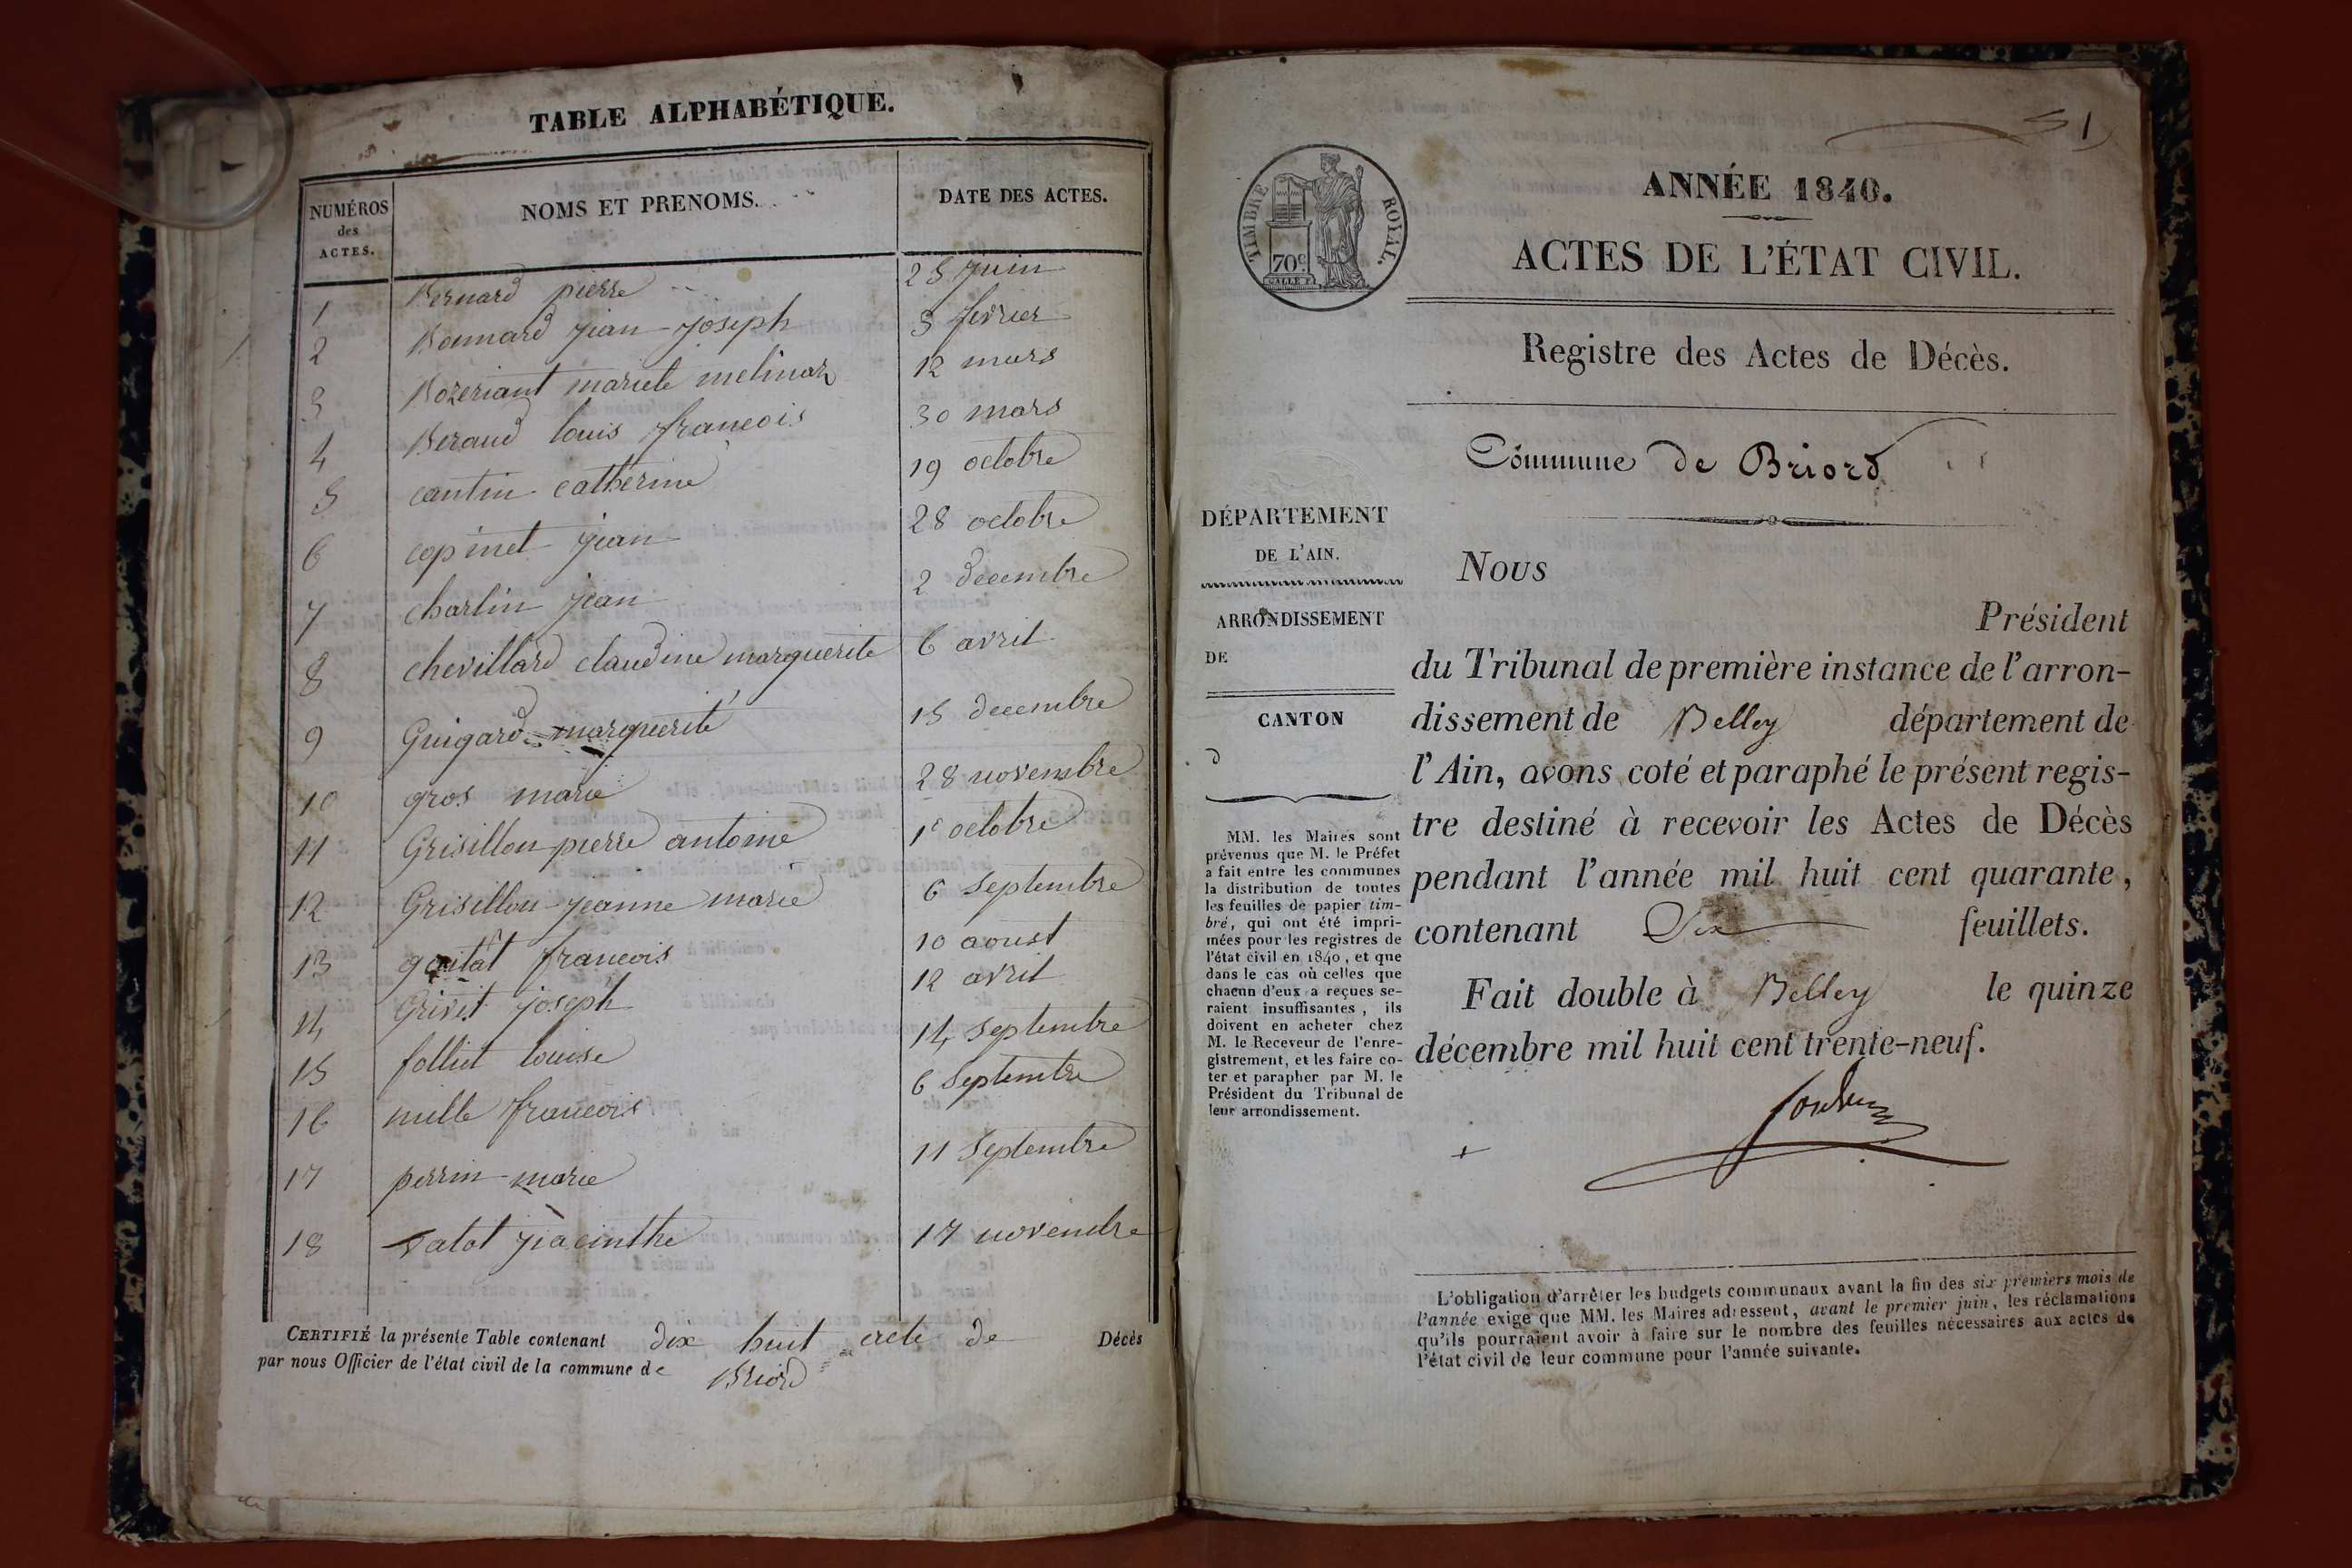 TABLE ALPHABÉTIQUE.
NUMÉROS des ACTES. NOMS ET PRENOMS. DATE DES ACTES.
1 Bernard pierre 25 juin
2 Bonnard jean-joseph 3 fevrier
3 Bozeriant mariete melinar 12 mars
4 Beraud louis francois 30 mars
5 cantin catherine 19 octobre
6 copinet jean 28 octobre
7 charlin jean 2 decembre
8 chevillard claudine marguerite 6 avril
9 Guigard marguerite 15 decembre
10 gros marie 28 novembre
11 Grisillon pierre antoine 1e octobre
12 Grisillon jeanne marie 6 septembre
13 francois 10 aoust
14 Grivet joseph 12 avril
15 folliet louise 14 septembre
16 mille francois 6 septembre
17 perrin marie 11 septembre
18 vatot jiacinthe 17 novembre
CERTIFIÉ la présente Table contenant dix huit acte de Décès
par nous Officier de l'état civil de la commune de Briord
51
TIMBRE ROYAL.
70c.
ANNÉE 1840.
ACTES DE L'ÉTAT CIVIL.
Registre des Actes de Décès.
Commune de Briord
DÉPARTEMENT
DE L'AIN.
ARRONDISSEMENT
DE
CANTON
d
MM. les Maires sont
prévenus que M. le Préfet
a fait entre les communes
la distribution de toutes
les feuilles de papier tim-
bré, qui ont été impri-
mées pour les registres de
l'état civil en 1840, et que
dans le cas où celles que
chacun d'eux a reçues se-
raient insuffisantes, ils
doivent en acheter chez
M. le Receveur de l'enre-
gistrement, et les faire co-
ter et parapher par M. le
Président du Tribunal de
leur arrondissement.
Nous
Président
du Tribunal de première instance de l'arron-
dissement de Belley département de
l'Ain, avons coté et paraphé le présent regis-
tre destiné à recevoir les Actes de Décès
pendant l'année mil huit cent quarante,
contenant Six feuillets.
Fait double à Belley le quinze
décembre mil huit cent trente-neuf.
L'obligation d'arrêter les budgets communaux avant la fin des six premiers mois de
l'année exige que MM. les Maires adressent, avant le premier juin, les réclamations
qu'ils pourraient avoir à faire sur le nombre des feuilles nécessaires aux actes de
l'état civil de leur commune pour l'année suivante.